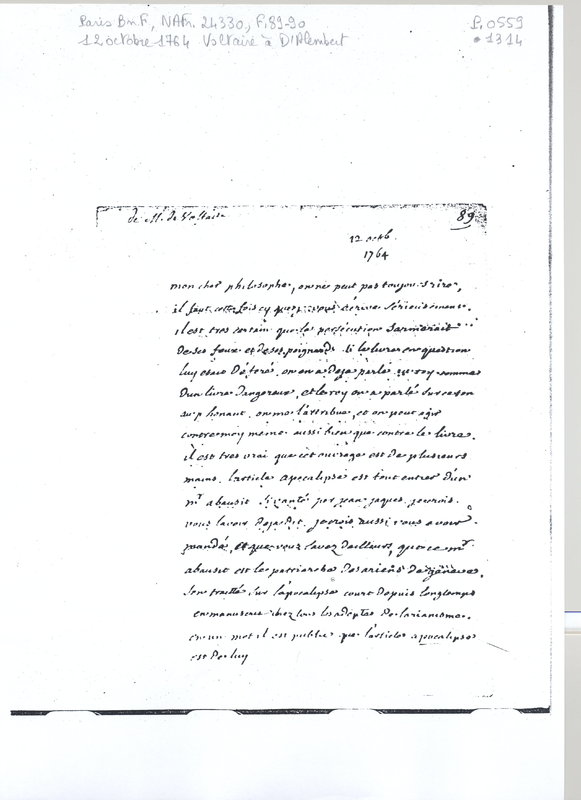 Paris BnF, NAFr. 24330, F.89-90
P. 0559
12 octobre 1764 Voltaire à D'Alembert
*1314
de M. de Voltaire
89
12 octb.
1764
mon cher philosophe, on ne peut pas toujours rire,
il faut cette fois cy que je vous écrive sérieusement.
il est tres certain que la persécution sarmerait
de ses feux et de ses poignards si le livre en question
luy etait déféré, on en a deja parlé au roy comme
dun livre dangereux, et le roy en a parlé sur ce ton
au p henaut. on me l'attribue, et on peut agir
contre moy meme aussi bien que contre le livre.
il est tres vrai que cet ouvrage est de plusieurs
mains. l'article apocalipse est tout entier d'un
mr abausit si vanté par jean jaques. je crois
vous lavoir deja dit, je crois aussi vous avoir
mandé, et que vous savez dailleurs, que ce mr
abausit est le patriarche des ariens de genève.
son traitté sur l'apocalipse court depuis longtemps
en manuscrit chez tous les adeptes de larianisme.
en un mot il est public que l'article apocalipse
est de luy